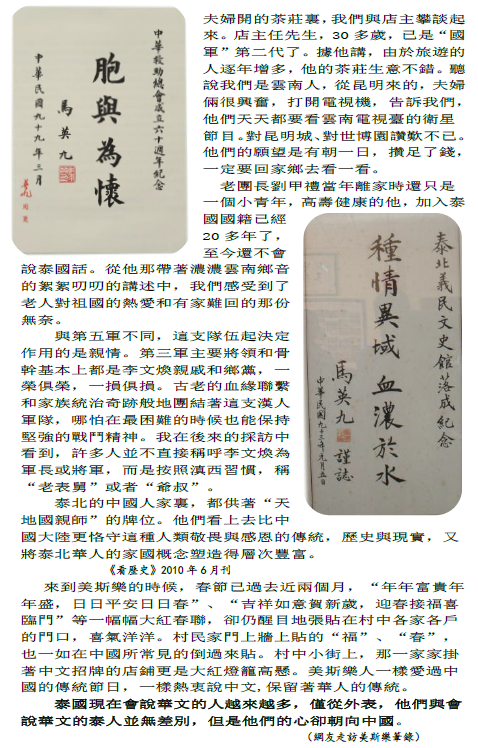 中華救助總會成立六十週年紀念
胞與為懷
馬英九
中華民國九十九年三月
夫婦開的茶莊裏,我們與店主攀談起
來。店主任先生,30多歲,已是“國
軍”第二代了。據他講,由於旅遊的
人逐年增多,他的茶莊生意不錯。聽
說我們是雲南人,從昆明來的,夫婦
倆很興奮,打開電視機,告訴我們,
他們天天都要看雲南電視臺的衛星
節目。對昆明城、對世博園讚歎不已。
他們的願望是有朝一日,攢足了錢,
一定要回家鄉去看一看。
老團長劉甲禮當年離家時還只是
一個小青年,高壽健康的他,加入泰
國國籍已經
20多年了,
至今還不會
說泰國話。從他那帶著濃濃雲南鄉音
的絮絮叨叨的講述中,我們感受到了
老人對祖國的熱愛和有家難回的那份
無奈。
泰北義民文史館落成紀念
種情異域 血濃於水
馬英九 謹誌
中華民國九十三年元月五日
與第五軍不同,這支隊伍起決定
作用的是親情。第三軍主要將領和骨
幹基本上都是李文煥親戚和鄉黨,一
榮俱榮,一損俱損。古老的血緣聯繫
和家族統治奇跡般地團結著這支漢人
軍隊,哪怕在最困難的時候也能保持
堅強的戰鬥精神。我在後來的採訪中
看到,許多人並不直接稱呼李文煥為
軍長或將軍,而是按照滇西習慣,稱
“老表舅”或者“爺叔”。
泰北的中國人家裏,都供著“天
地國親師”的牌位。他們看上去比中
國大陸更恪守這種人類敬畏與感恩的傳統,歷史與現實,又
將泰北華人的家國概念塑造得層次豐富。
《看歷史》2010年6月刊
來到美斯樂的時候,春節已過去近兩個月,“年年富貴年
年盛,日日平安日日春”、“吉祥如意賀新歲,迎春接福喜
臨門”等一幅幅大紅春聯,卻仍醒目地張貼在村中各家各戶
的門口,喜氣洋洋。村民家門上牆上貼的“福”、“春”,
也一如在中國所常見的倒過來貼。村中小街上,那一家家掛
著中文招牌的店鋪更是大紅燈籠高懸。美斯樂人一樣愛過中
國的傳統節日,一樣熱衷說中文,保留著華人的傳統。
泰國現在會說華文的人越來越多,僅從外表,他們與會
說華文的泰人並無差別,但是他們的心卻朝向中國。
(網友走訪美斯樂輩錄)